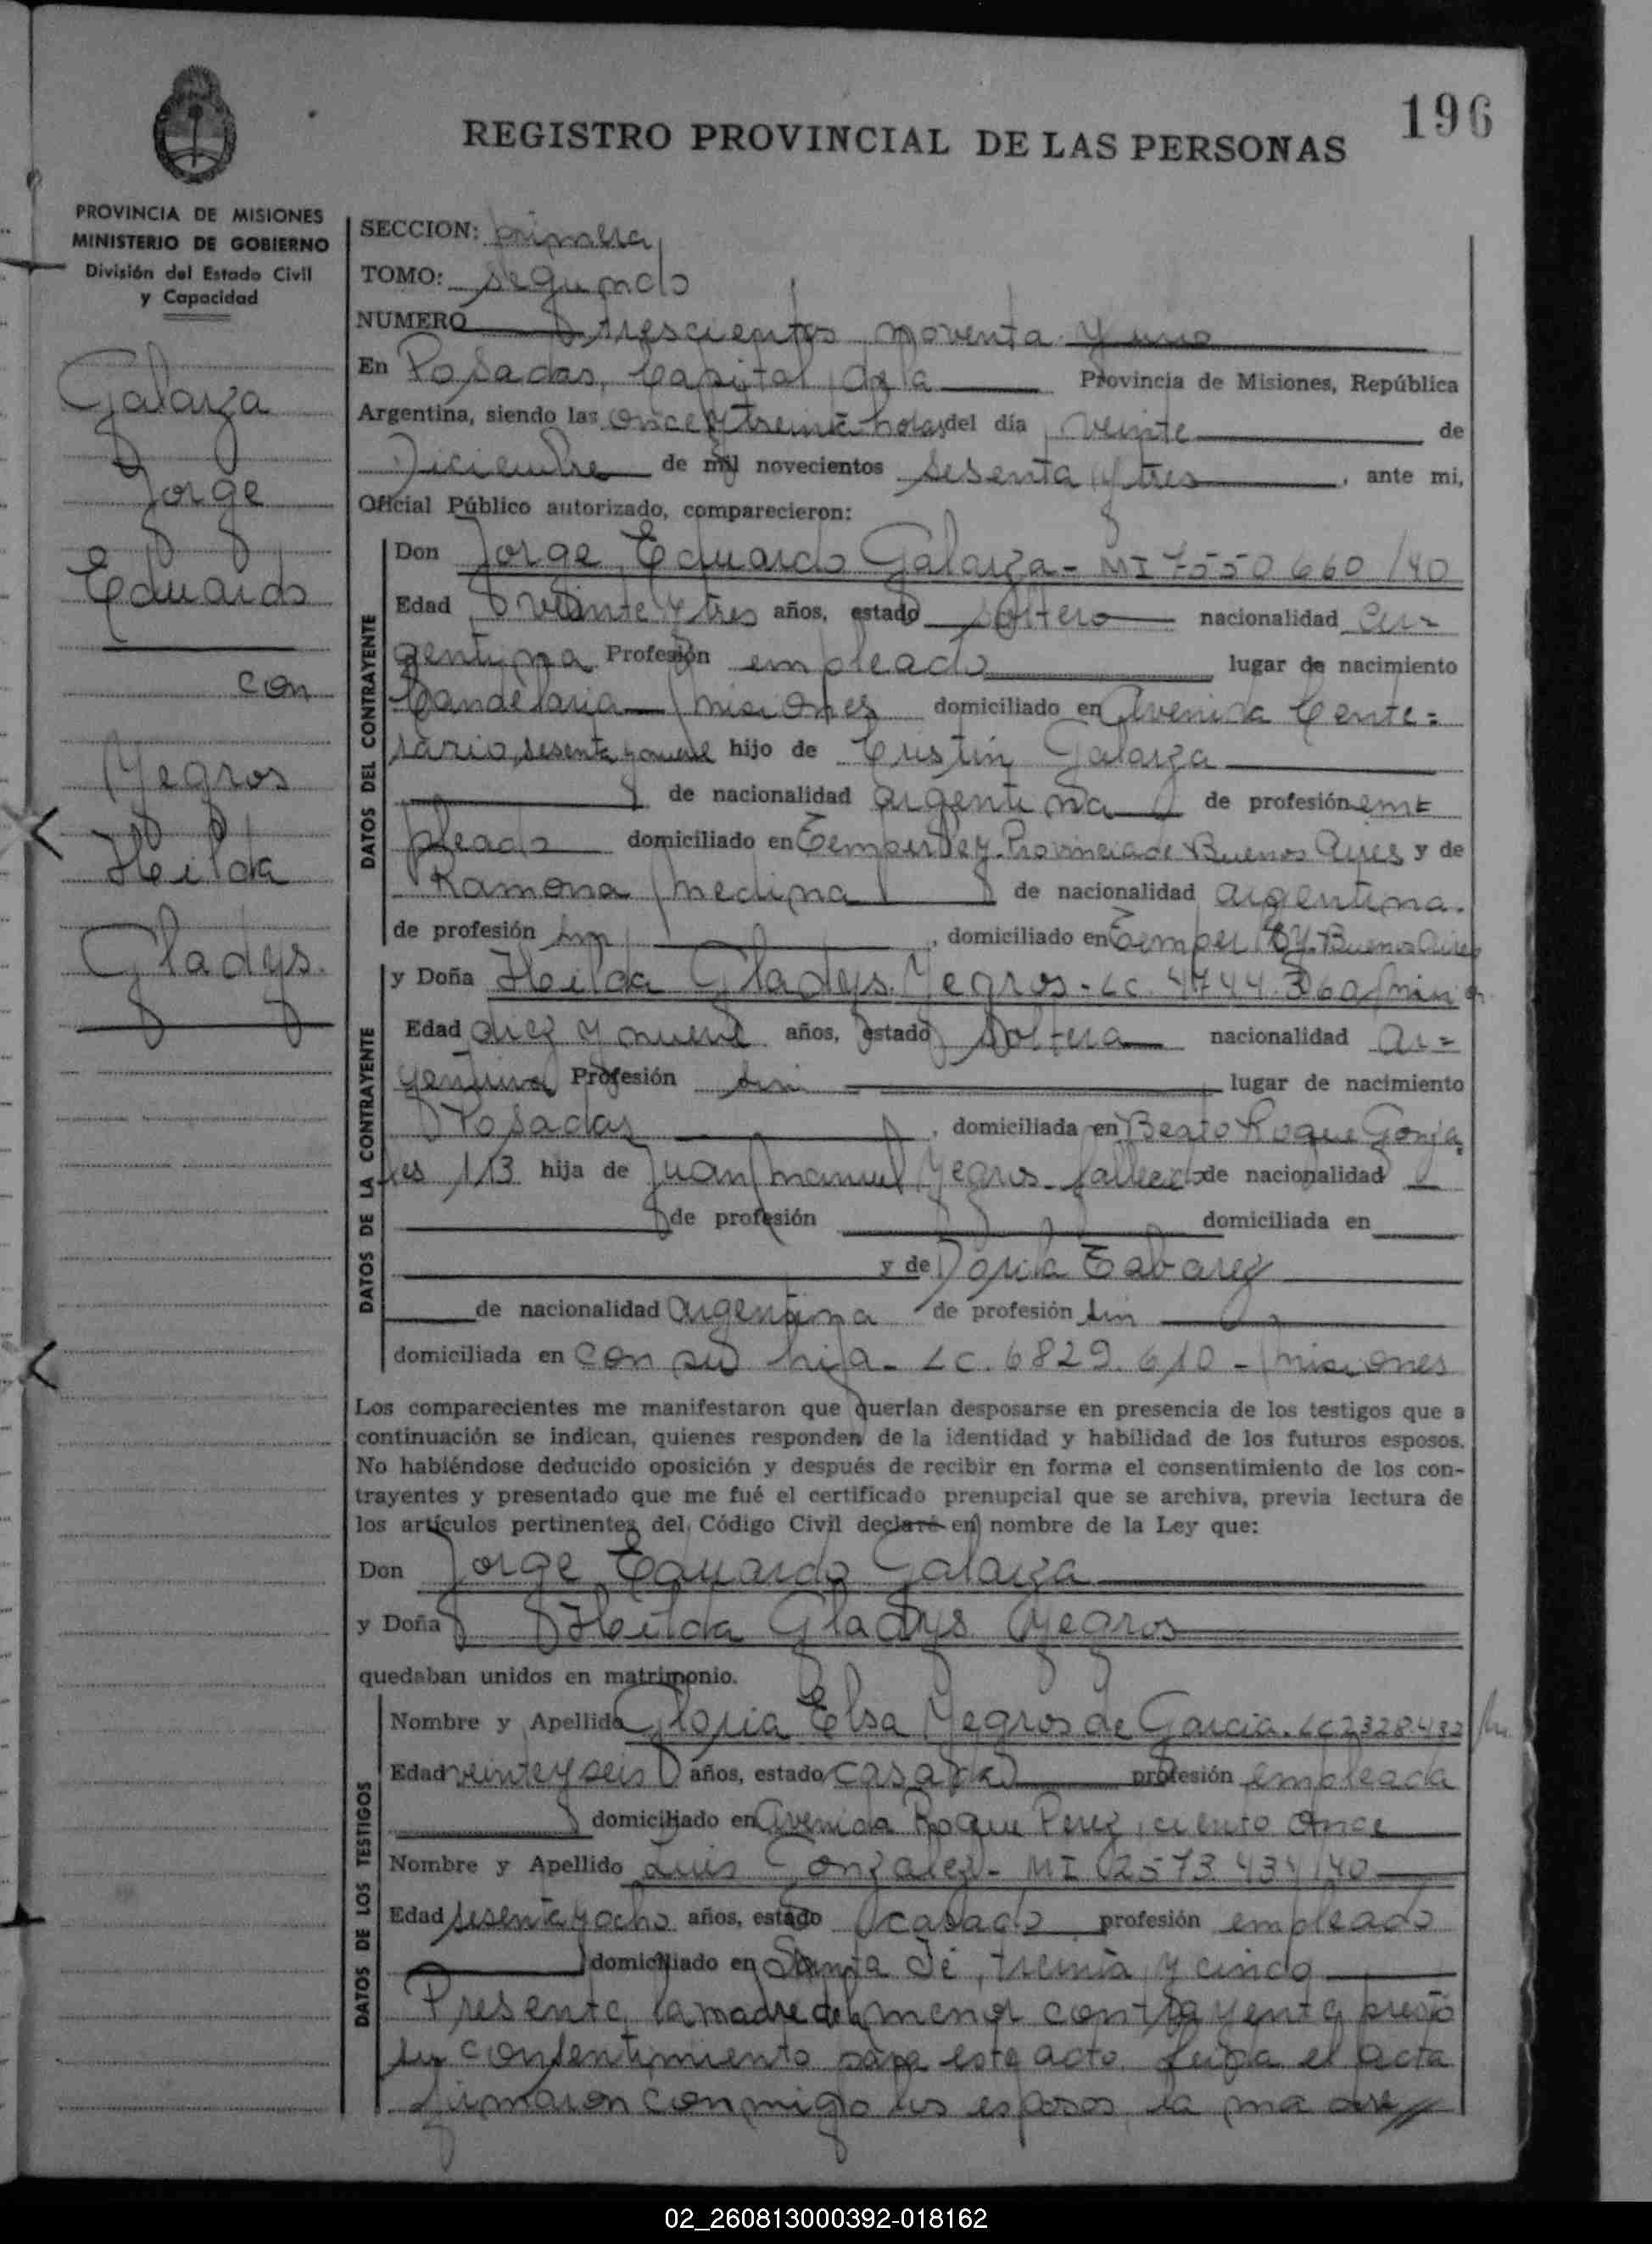 196
REGISTRO PROVINCIAL DE LAS PERSONAS
PROVINCIA DE MISIONES
MINISTERIO DE GOBIERNO
División del Estado Civil
y Capacidad
Galarza
Jorge
Eduardo
con
Yegros
Hilda
Gladys.
SECCION: primera
TOMO: segundo
NUMERO trescientos noventa y uno
En Posadas, Capital de la Provincia de Misiones, República
Argentina, siendo las once y treinta horas del día veinte de
Diciembre de mil novecientos sesenta y tres, ante mi,
Oficial Público autorizado, comparecieron:
DATOS DEL CONTRAYENTE
Don Jorge Eduardo Galarza - MI 7550660/40
Edad veinte y tres años, estado soltero nacionalidad ar=
gentina Profesión empleado lugar de nacimiento
Candelaria Misiones domiciliado en Avenida Cente=
nario, sesenta y nueve hijo de Cristin Galarza
de nacionalidad argentina de profesión em=
pleado domiciliado en Temperley. Provincia de Buenos Aires y de
Ramona Medina de nacionalidad argentina.
de profesión sin, domiciliado en Temperley. Buenos Aires
DATOS DE LA CONTRAYENTE
y Doña Hilda Gladys Yegros - LC. 4744.360
Edad diez y nueve años, estado soltera nacionalidad ar=
gentina Profesión sin lugar de nacimiento
Posadas, domiciliada en Beato Roque Gonza
les 113 hija de Juan Manuel Yegros - fallecido de nacionalidad
de profesión domiciliada en
y de Tabarez
de nacionalidad argentina de profesión sin
domiciliada en con su hija - LC. 6829.610 - Misiones
Los comparecientes me manifestaron que querían desposarse en presencia de los testigos que a
continuación se indican, quienes responden de la identidad y habilidad de los futuros esposos.
No habiéndose deducido oposición y después de recibir en forma el consentimiento de los con-
trayentes y presentado que me fué el certificado prenupcial que se archiva, previa lectura de
los artículos pertinentes del Código Civil declaré en nombre de la Ley que:
Don Jorge Eduardo Galarza
y Doña Hilda Gladys Yegros
quedaban unidos en matrimonio.
DATOS DE LOS TESTIGOS
Nombre y Apellido Gloria Elsa Yegros de Garcia. LC 2328.432
Edad veinte y seis años, estado casada profesión empleada
domiciliado en Avenida Roque Perez, ciento once
Nombre y Apellido Luis Gonzalez - MI 2573.434/40
Edad sesenta y ocho años, estado casado profesión empleado
domiciliado en Santa Fé, treinta y cinco
Presente la madre de la menor contrayente prestó
su consentimiento para este acto. Leida el acta
firmaron conmigo los esposos, la madre
02_260813000392-018162